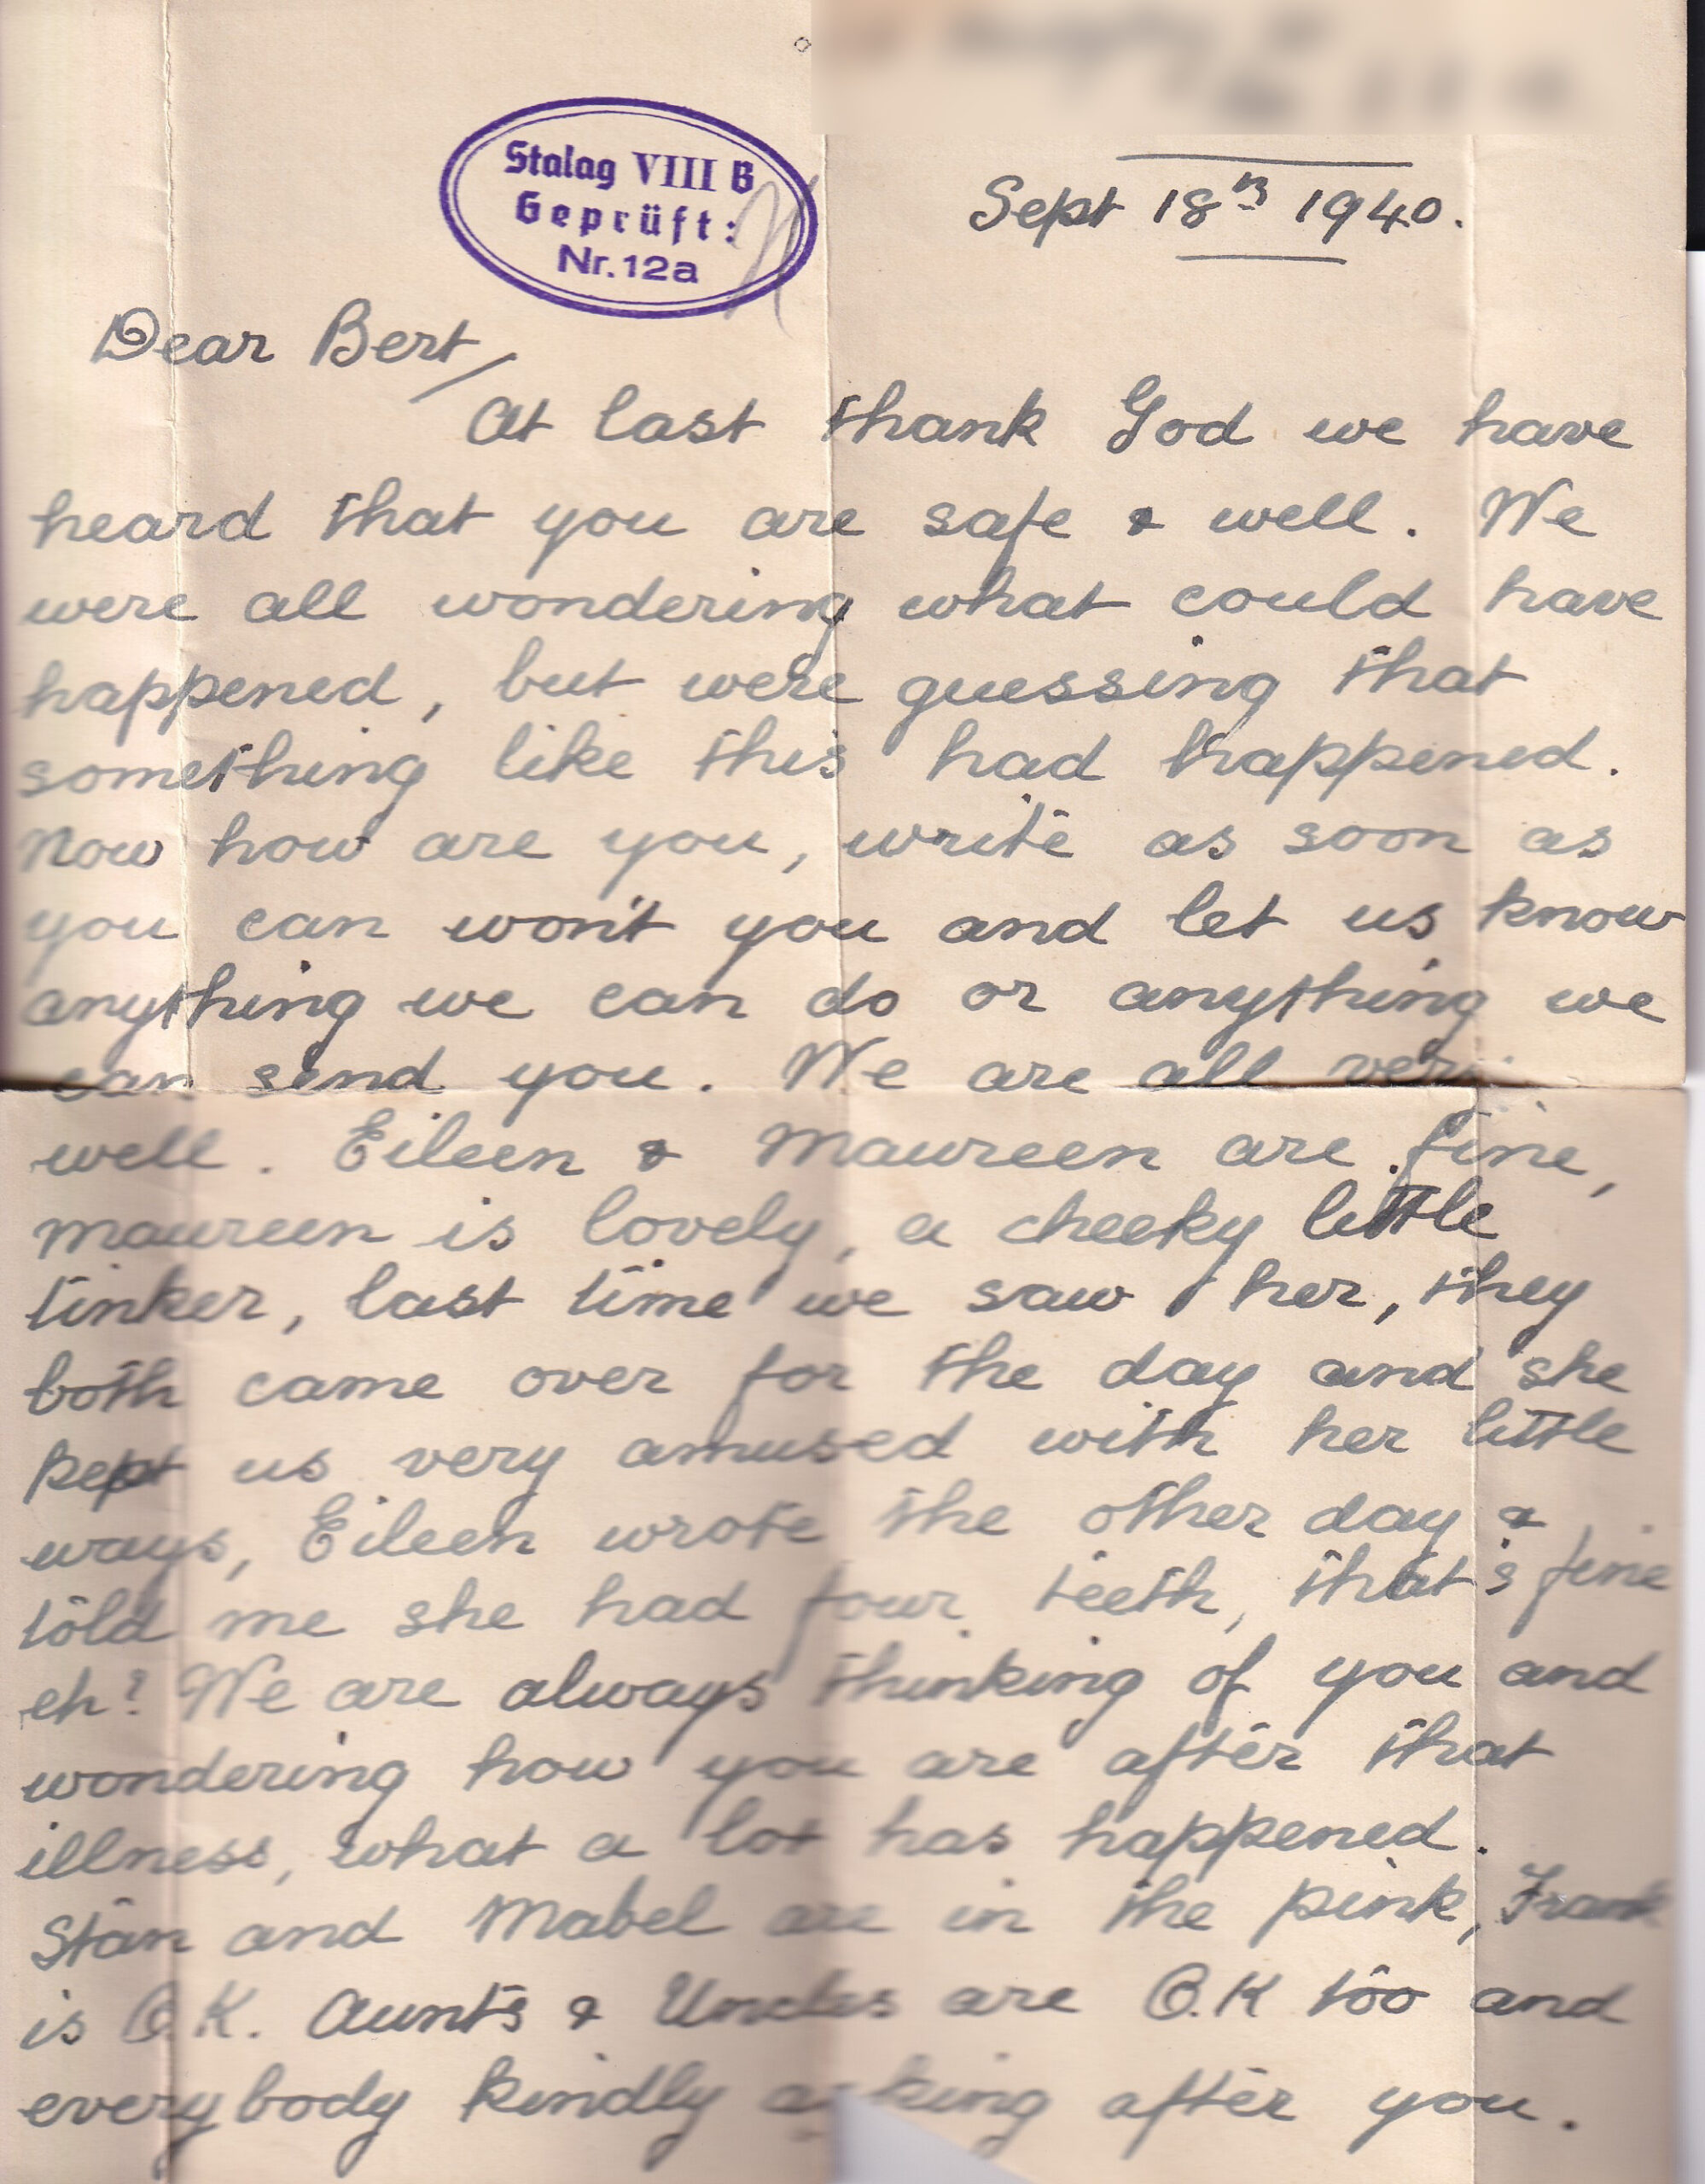 Stalag VIII B
Geprüft:
Nr. 12a
Sept 18th 1940.
Dear Bert,
At last thank God we have
heard that you are safe & well. We
were all wondering what could have
happened, but were guessing that
something like this had happened.
Now how are you, write as soon as
you can won't you and let us know
anything we can do or anything we
can send you. We are all very
well. Eileen & Maureen are fine,
Maureen is lovely, a cheeky little
tinker, last time we saw her, they
both came over for the day and she
kept us very amused with her little
ways, Eileen wrote the other day &
told me she had four teeth, that's fine
eh? We are always thinking of you and
wondering how you are after that
illness, what a lot has happened.
Stan and Mabel are in the pink, Frank
is O.K. Aunts & Uncles are O.K too and
everybody kindly asking after you.